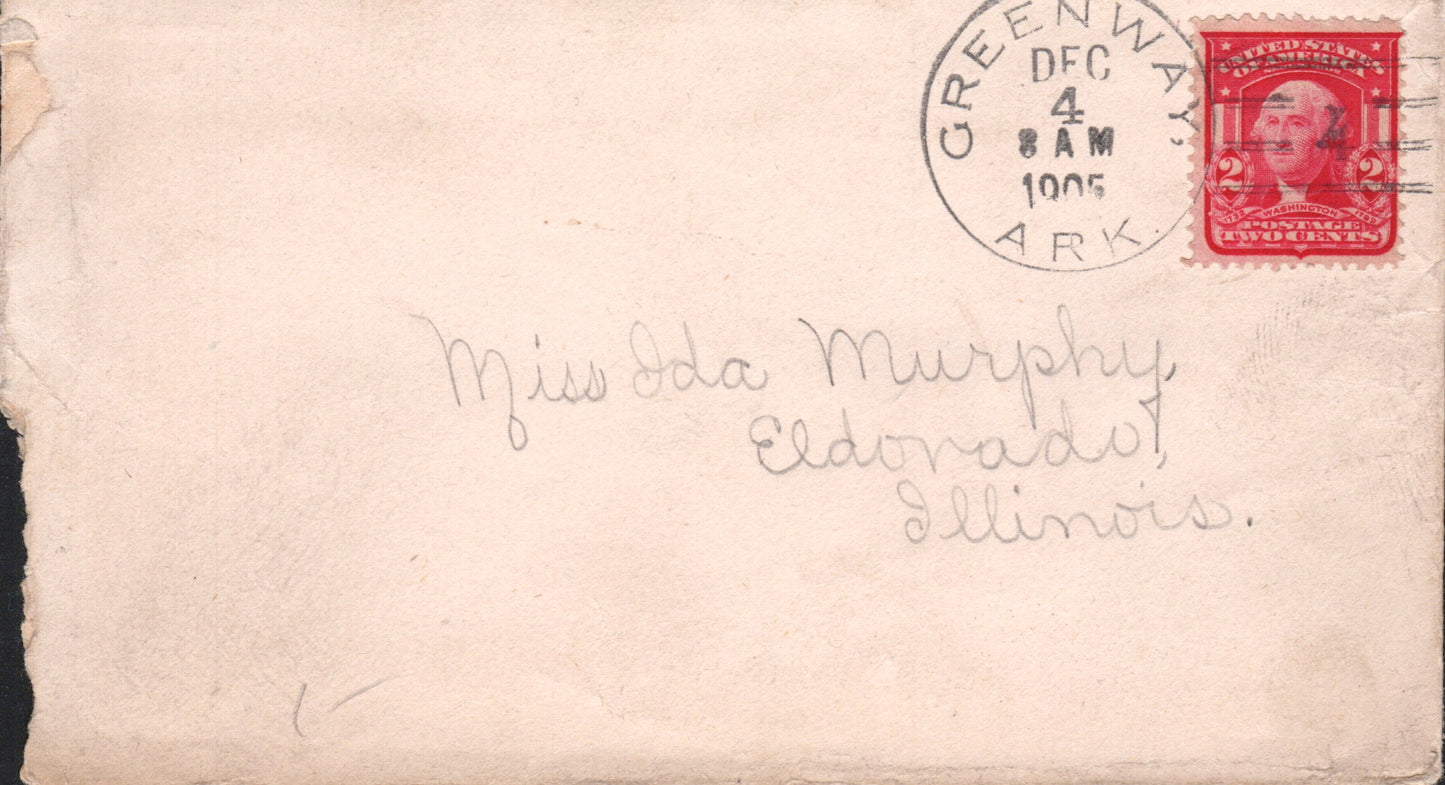 GREENWAY,
DEC
4
8 AM
1905
ARK.
UNITED STATES
OF AMERICA
4
2 2
1732 WASHINGTON 1799
POSTAGE
TWO CENTS
Miss Ida Murphy,
Eldorado,
Illinois.